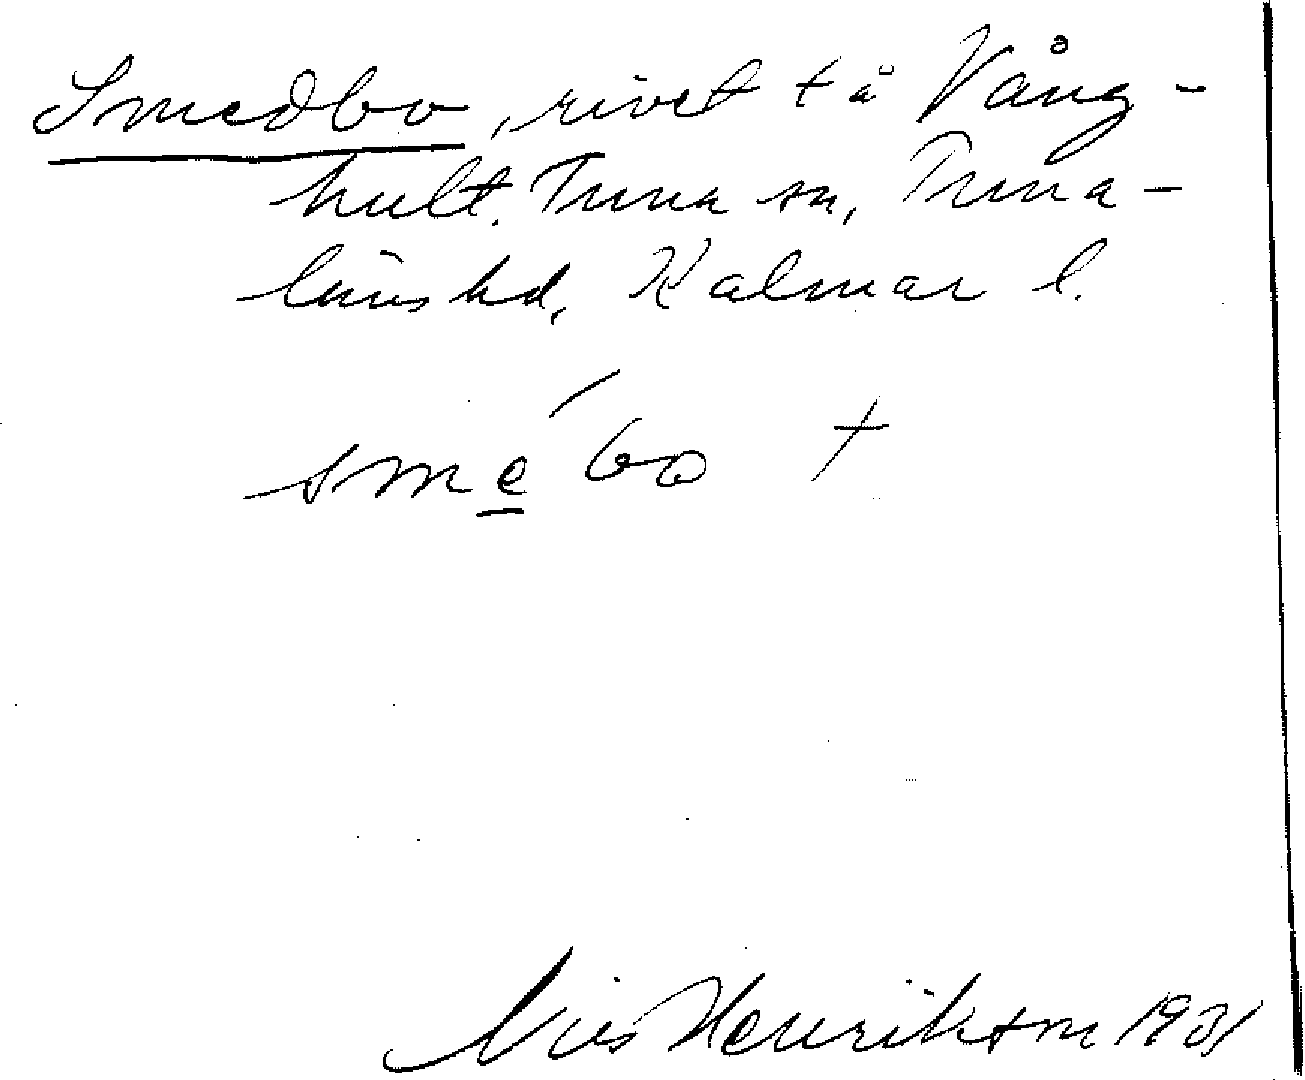 Smedbo, rivet t å Vång-
hult. Tuna sn, Tuna-
läns hd, Kalmar l.
sme´bo +
Nils Henrikson 1931